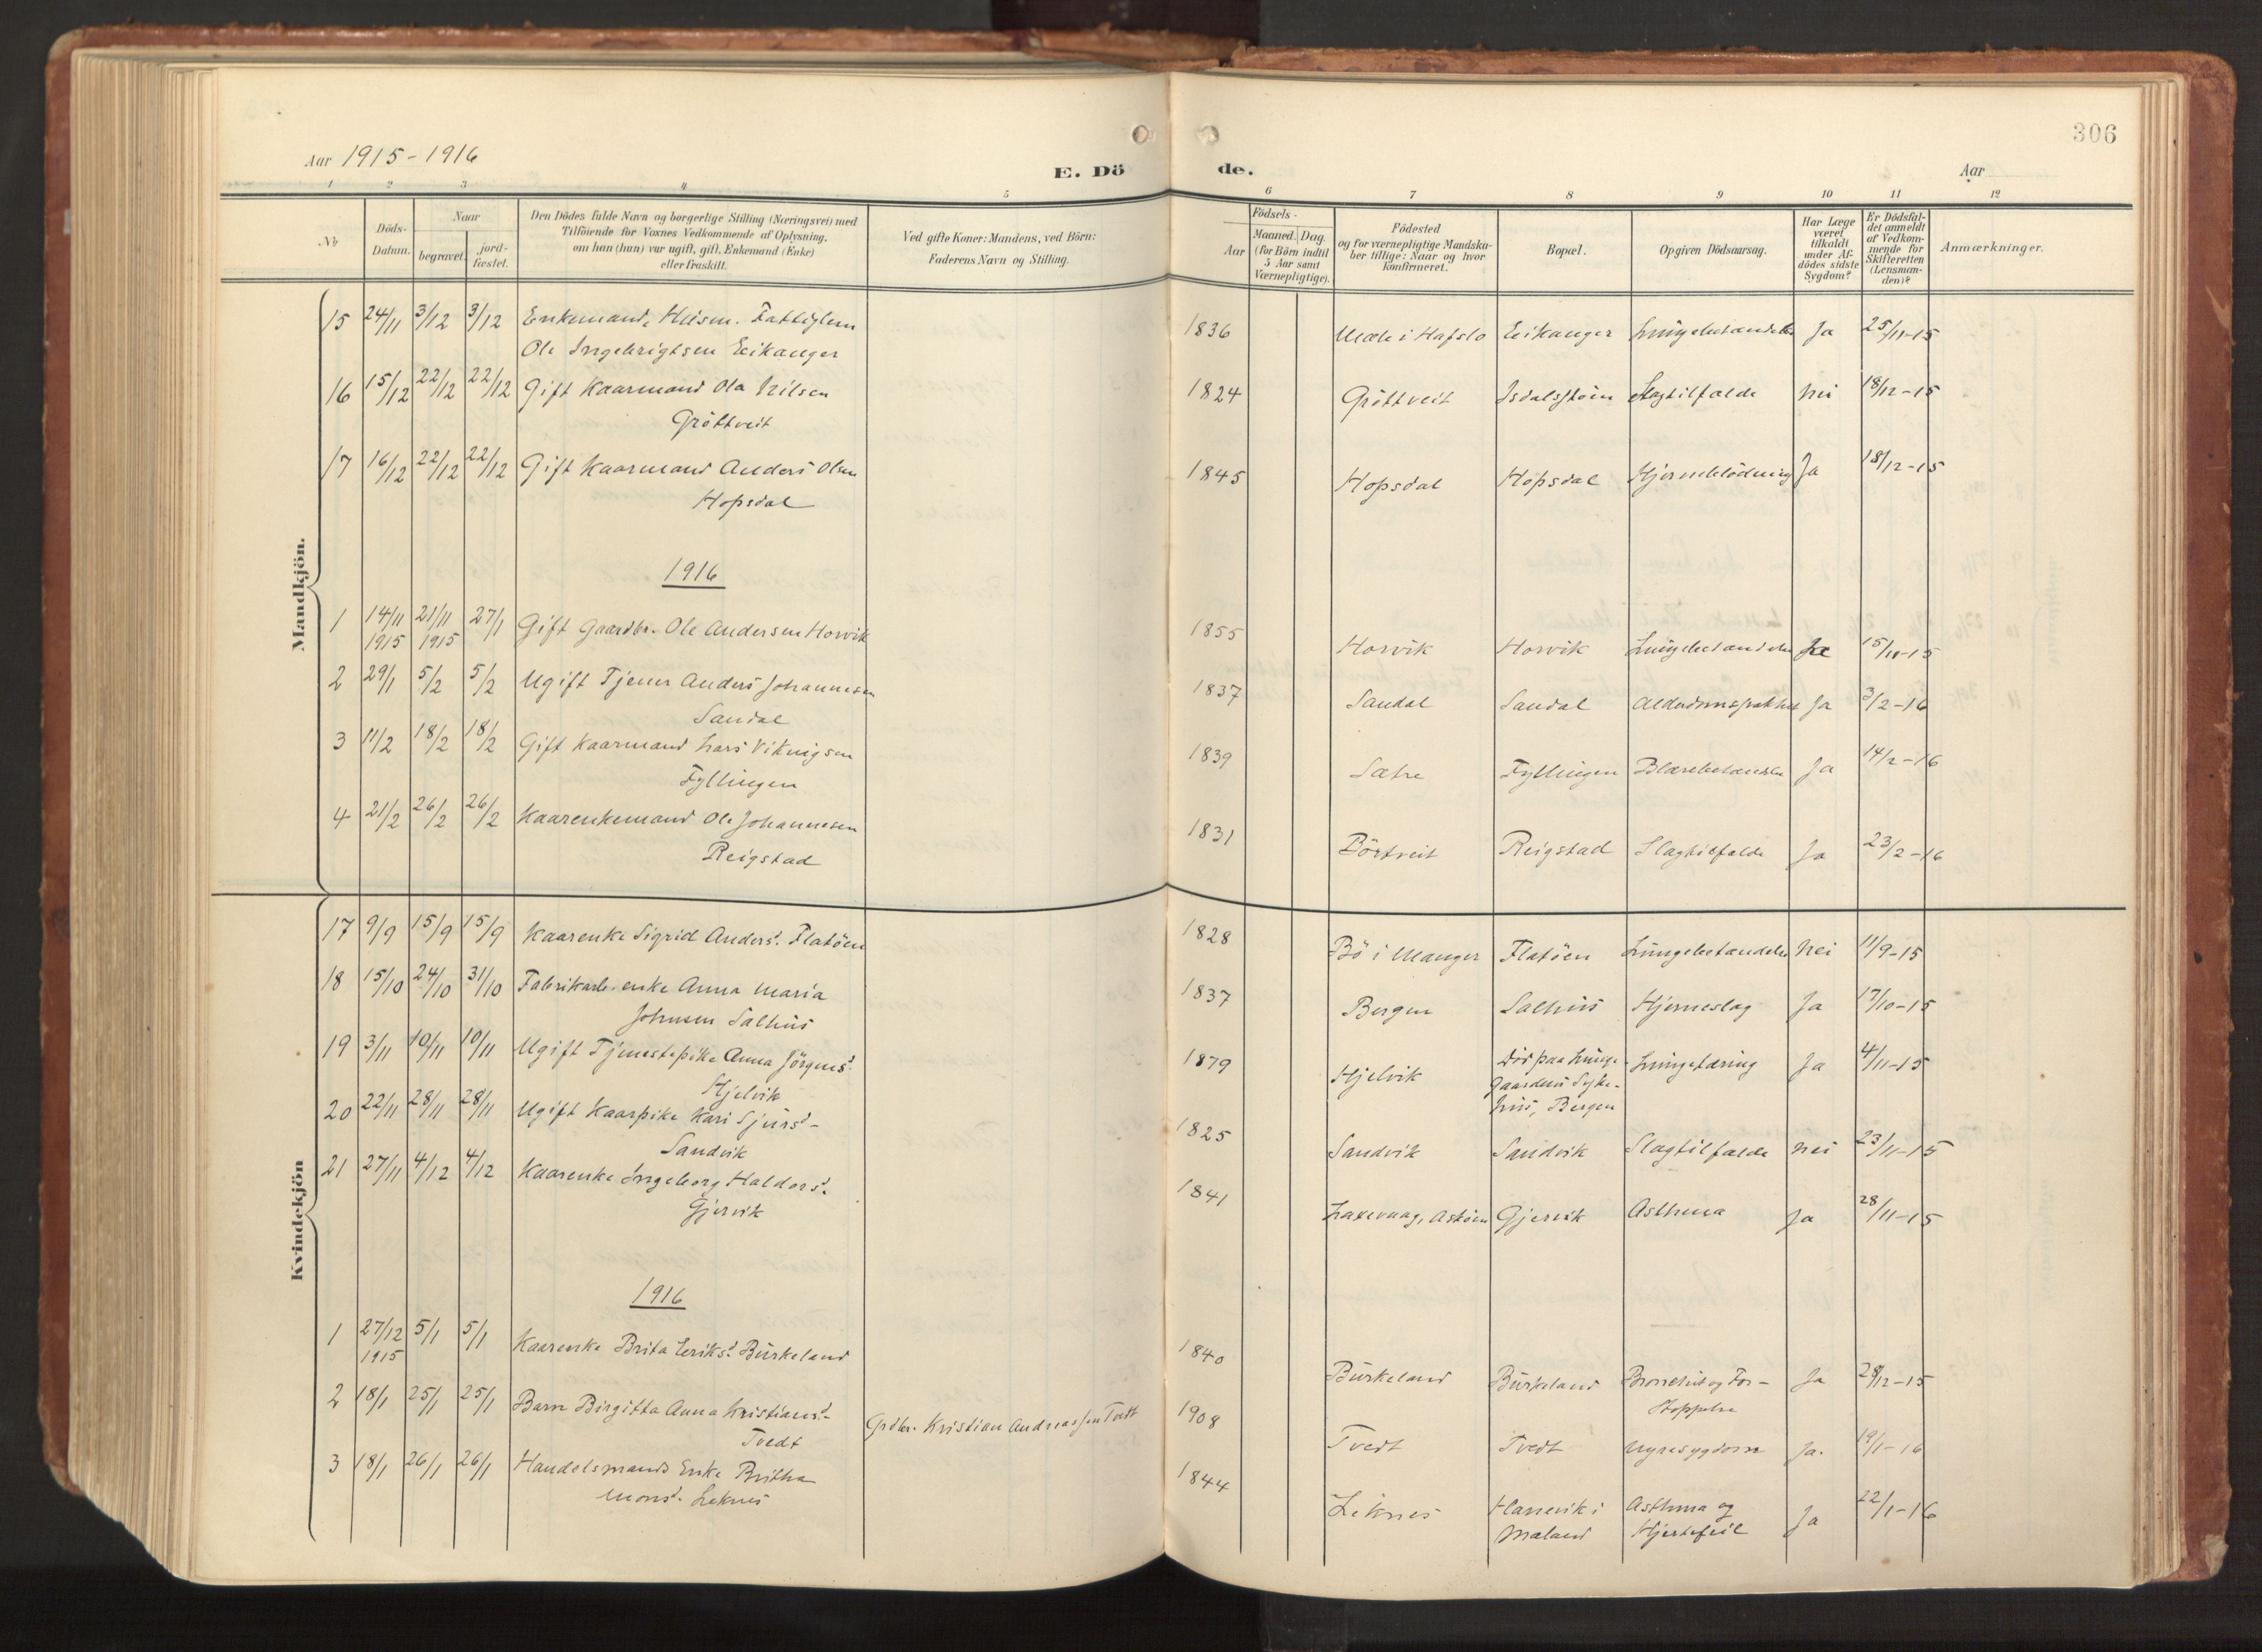 306
Aar 1915-1916
E. Dö
de.
Aar
1 2 3 4 5 6 7 8 9 10 11 12
No
Döds-Datum.
Naar
begravet.
jord-fæstet.
Den Dödes fulde Navn og borgerlige Stilling (Næringsvei) med
Tilföiende for Voxnes Vedkommende af Oplysning,
om han (hun) var ugift, gift, Enkemand (Enke)
eller fraskilt.
Ved gifte Koner: Mandens, ved Börn:
Faderens Navn og Stilling.
Födsels-
Aar
Maaned. Dag.
(for Börn indtil
5 Aar samt
Værnepligtige).
Födested
og for værnepligtige Mandska-
ber tillige: Naar og hvor
konfirmeret.
Bopæl.
Opgiven Dödsaarsag.
Har Læge
været
tilkaldt
under Af-
dödes sidste
Sygdom?
Er Dödsfal-
det anmeldt
af Vedkom-
mende for
Skifteretten
(Lensman-
den)?
Anmærkninger.
Mandkjön.
15 24/11 3/12 3/12 Enkemand, Husm. Fattiglem 1836 i Hafslo Eikanger Lungebetændelse Ja 25/11-15
Ole Ingebrigtsen Eikanger
16 15/12 22/12 22/12 Gift Kaarmand Ola Nilsen 1824 Gröttveit Isdalstöen Slagtilfælde Nei 18/12-15
Gröttveit
17 16/12 22/12 22/12 Gift Kaarmand Anders Olsen 1845 Hopsdal Hopsdal Hjerneblödning Ja 18/12-15
Hopsdal
1916
1 14/11 21/11 27/1 Gift Gaardbr. Ole Andersen Horvik 1855 Horvik Horvik Lungebetændelse Ja 15/11-15
1915 1915
2 29/1 5/2 5/2 Ugift Tjener Anders Johannesen 1837 Sandal Sandal Alderdomssvakhet Ja 3/2-16
Sandal
3 11/2 18/2 18/2 Gift Kaarmand Lars Vikingsen 1839 Sætre Fyllingen Blærebetændelse Ja 14/2-16
Fyllingen
4 21/2 26/2 26/2 Kaarenkemand Ole Johannesen 1831 Börtveit Reigstad Slagtilfælde Ja 23/2-16
Reigstad
Kvindekjön
17 9/9 15/9 15/9 Kaarenke Sigrid Andersd. Flatöen 1828 Bö i Manger Flatöen Lungebetændelse Nei 11/9-15
18 15/10 24/10 31/10 Fabrikarb. enke Anna Maria 1837 Bergen Salhus Hjerneslag Ja 17/10-15
Johnsen Salhus
19 3/11 10/11 10/11 Ugift Tjenestepike Anna Jörgensd. 1879 Hjelvik Död paa Lunge- Lungetæring Ja 4/11-15
Hjelvik gaardens Syke-
hus, Bergen
20 22/11 28/11 28/11 Ugift Kaarpike Kari Sjursd- 1825 Sandvik Sandvik Slagtilfælde Nei 23/11-15
Sandvik
21 27/11 4/12 4/12 Kaarenke Ingeborg Haldorsd. 1841 Laxevaag, Askøen Gjervik Asthma Ja 28/11-15
Gjervik
1916
1 27/12 5/1 5/1 Kaarenke Brita Eriksd. Burkeland 1840 Burkeland Burkeland og For- Ja 28/12-15
1915 stoppelse
2 18/1 25/1 25/1 Barn Birgitta Anna Kristiansd- Grdbr. Kristian Andreassen Tvedt 1908 Tvedt Tvedt Nyresygdom Ja. 19/1-16
Tvedt
3 18/1 26/1 26/1 Handelsmands Enke Britha 1844 Leknes Hanevik i Asthma og Ja 22/1-16
Monsd. Leknes Mæland Hjertefeil